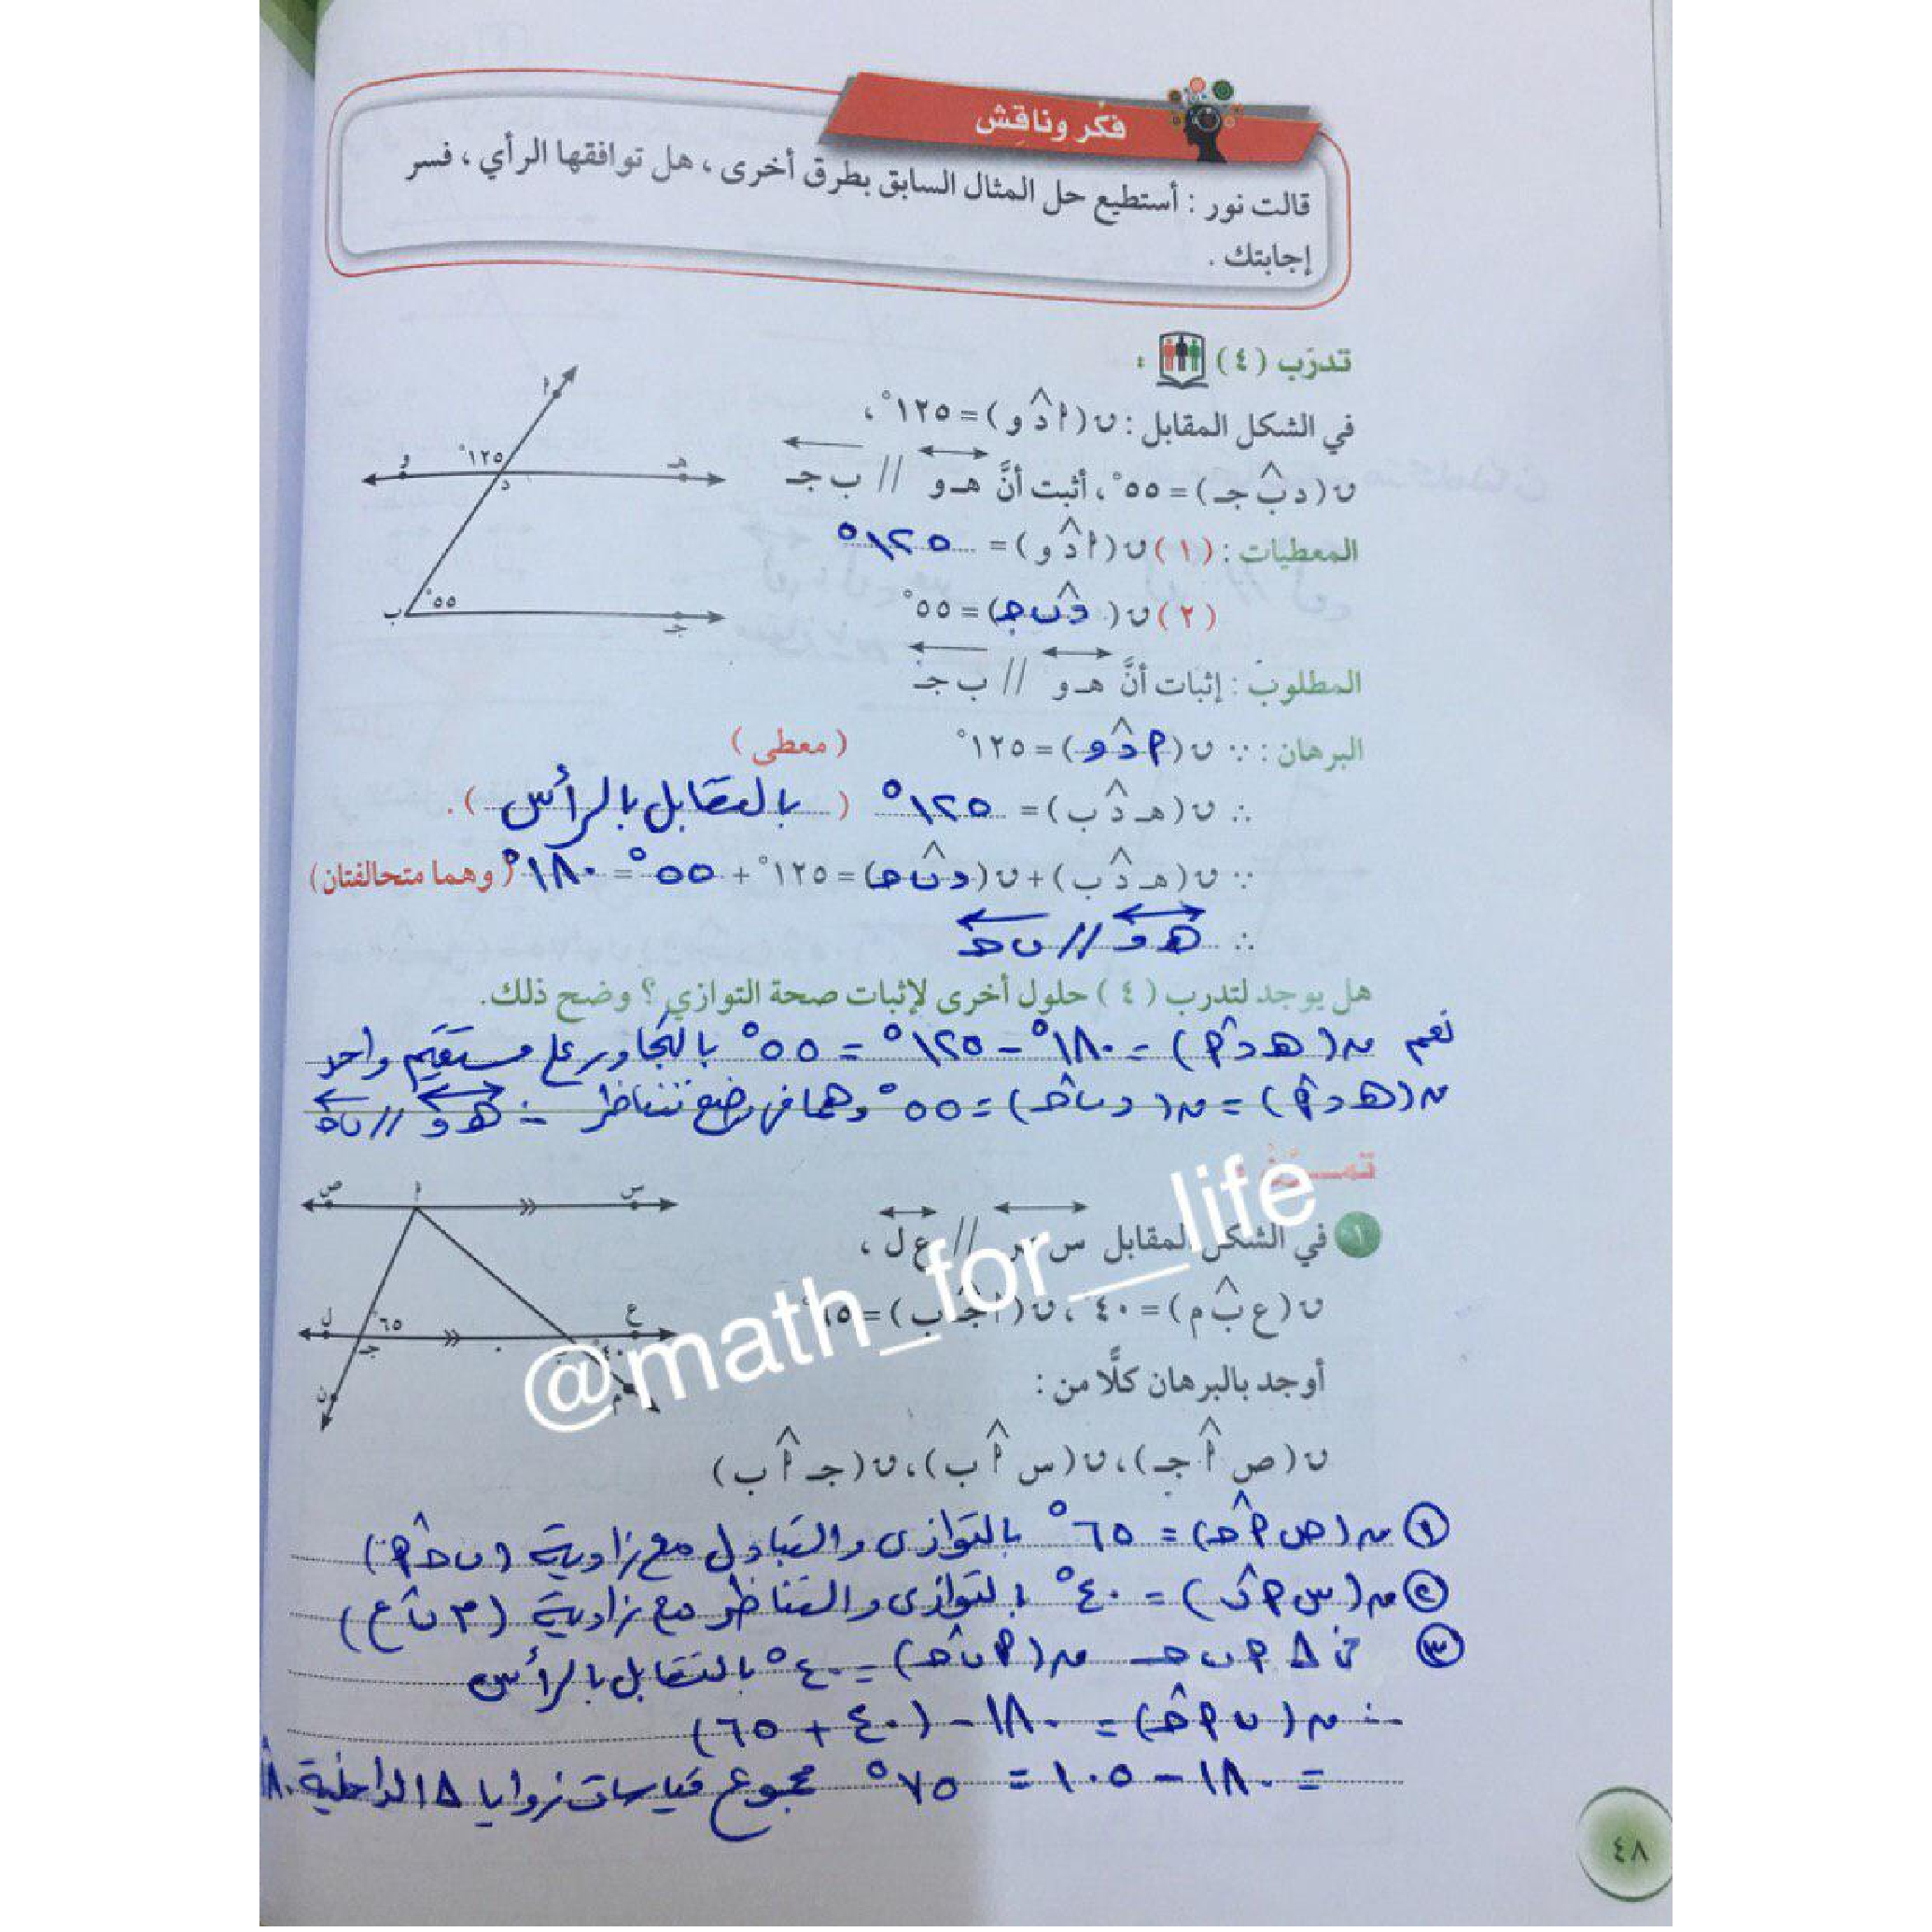 فكر وناقش
قالت نور : أستطيع حل المثال السابق بطرق أخرى ، هل توافقها الرأي ، فسر
إجابتك .
تدرب ( ٤ ) :
في الشكل المقابل : ن ( أ د و ) = ١٢٥° ،
ن ( د ب جـ ) = ٥٥° ، أثبت أنَّ هـ و // ب جـ
المعطيات : ( ١ ) ن ( أ د و ) = ١٢٥°
( ٢ ) ن ( د ب جـ ) = ٥٥°
المطلوب : إثبات أنَّ هـ و // ب جـ
البرهان : ∵ ن ( أ د و ) = ١٢٥° ( معطى )
∴ ن ( هـ د ب ) = ١٢٥° ( بالتقابل بالرأس ) .
∵ ن ( هـ د ب ) + ن ( د ب جـ ) = ١٢٥° + ٥٥° = ١٨٠° ( وهما متحالفتان )
∴ هـ و // ب جـ
هل يوجد لتدرب ( ٤ ) حلول أخرى لإثبات صحة التوازي ؟ وضح ذلك .
نعم ن ( هـ د أ ) = ١٨٠° - ١٢٥° = ٥٥° بالتجاور على مستقيم واحد
ن ( هـ د أ ) = ن ( د ب جـ ) = ٥٥° وهما في وضع تناظر ∴ هـ و // ب جـ
أ
و
١٢٥°
هـ
د
ب
٥٥°
جـ
تمرَّن :
١ في الشكل المقابل س ص // ع ل ،
ن ( ع ب م ) = ٤٠° ، ن ( أ جـ ب ) = ٦٥°
أوجد بالبرهان كلًّا من :
ن ( ص أ جـ ) ، ن ( س أ ب ) ، ن ( جـ أ ب )
ص
أ
س
ل
٦٥
ع
جـ
٤٠°
ن
م
١ ن ( ص أ جـ ) = ٦٥° بالتوازي والتبادل مع زاوية ( ب جـ أ )
٢ ن ( س أ ب ) = ٤٠° بالتوازي والتناظر مع زاوية ( م ب ع )
٣ في Δ أ ب جـ ن ( أ ب جـ ) = ٤٠° بالتقابل بالرأس
∴ ن ( ب أ جـ ) = ١٨٠ - ( ٤٠ + ٦٥ )
= ١٨٠ - ١٠٥ = ٧٥° مجموع قياسات زوايا Δ الداخلية ١٨٠
@math_for__life
٤٨